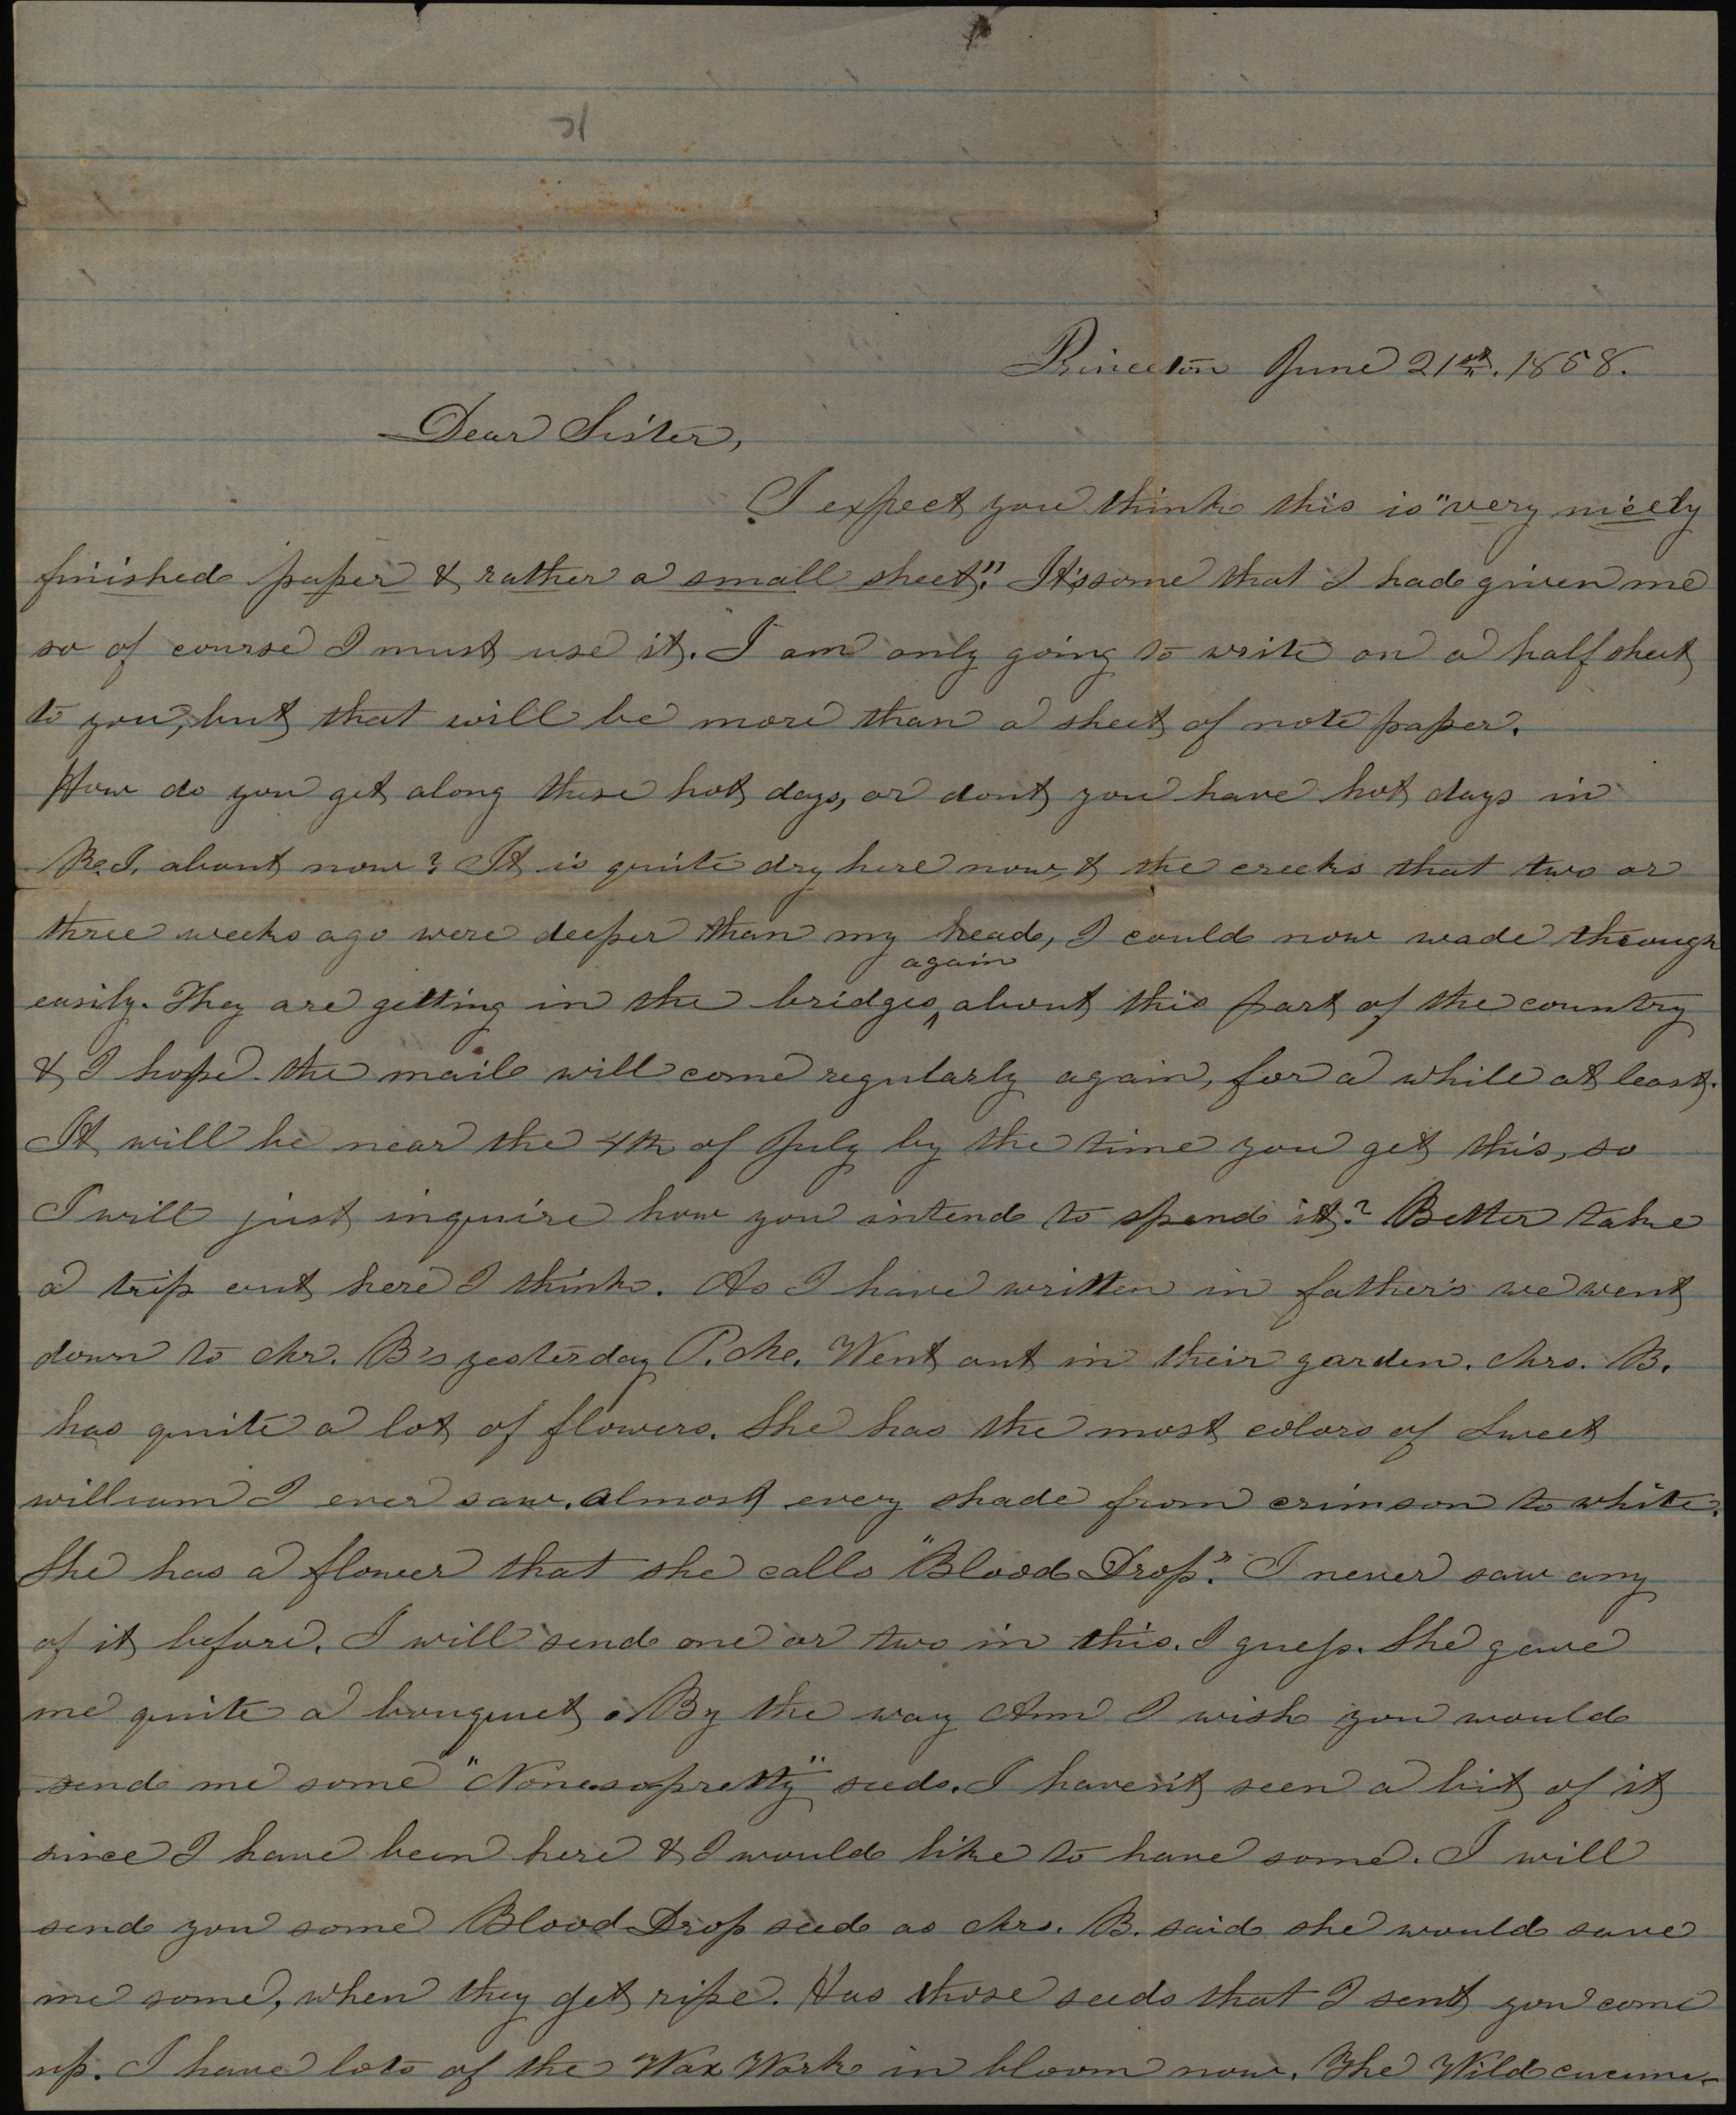 Princeton June 21st. 1858.
Dear Sister,
I expect you think this is "very nicely
finished paper & rather a small sheet". It's some that I had given me
so of course I must use it. I am only going to write on a half sheet
to you, but that will be more than a sheet of note paper.
How do you get along these hot days, or dont you have hot days in
R.I. about now? It is quite dry here now, & the creeks that two or
three weeks ago were deeper than my head, I could now wade through
again
easily. They are getting in the bridges ^ about this part of the country
& I hope the mail will come regularly again, for a while at least.
It will be near the 4th of July by the time you get this, so
I will just inquire how you intend to spend it? Better take
a trip out here I think. As I have written in father's we went
down to Mr. B's yesterday P.M. Went out in their garden. Mrs. B.
has quite a lot of flowers. She has the most colors of Sweet
william I ever saw. almost every shade from crimson to white.
She has a flower that she calls "Blood Drop". I never saw any
of it before. I will send one or two in this. I guess. She gave
me quite a bouquet. By the way Ann I wish you would
send me some "Nonesopretty" seeds. I haven't seen a bit of it
since I have been here & I would like to have some. I will
send you some Blood-Drop seed as Mrs. B. said she would save
me some, when they get ripe. Has those seeds that I sent you come
up. I have lots of the Wax Work in bloom now. The Wild cucum-